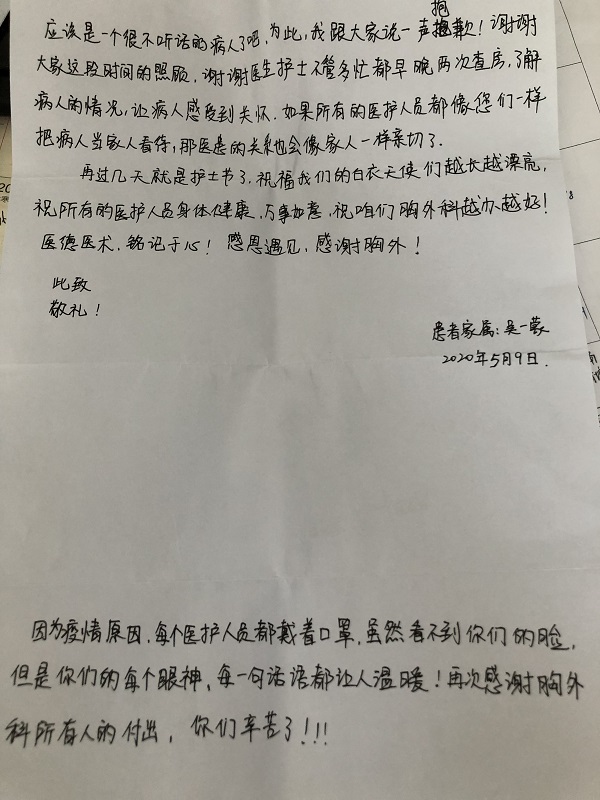 应该是一个很不听话的病人了吧,为此,我跟大家说一声抱歉!谢谢
大家这段时间的照顾,谢谢医生护士不管多忙都早晚两次查房,了解
病人的情况,让病人感受到关怀.如果所有的医护人员都像您们一样
把病人当家人看待,那医患的关系也会像家人一样亲切了.
再过几天就是护士节了,祝福我们的白衣天使们越长越漂亮,
祝所有的医护人员身体健康,万事如意,祝咱们胸外科越办越好!
医德医术,铭记于心!感恩遇见,感谢胸外!
此致
敬礼!
患者家属:吴一蒙
2020年5月9日.
因为疫情原因,每个医护人员都戴着口罩,虽然看不到你们的脸,
但是你们的每个眼神,每一句话语都让人温暖!再次感谢胸外
科所有人的付出,你们辛苦了!!!